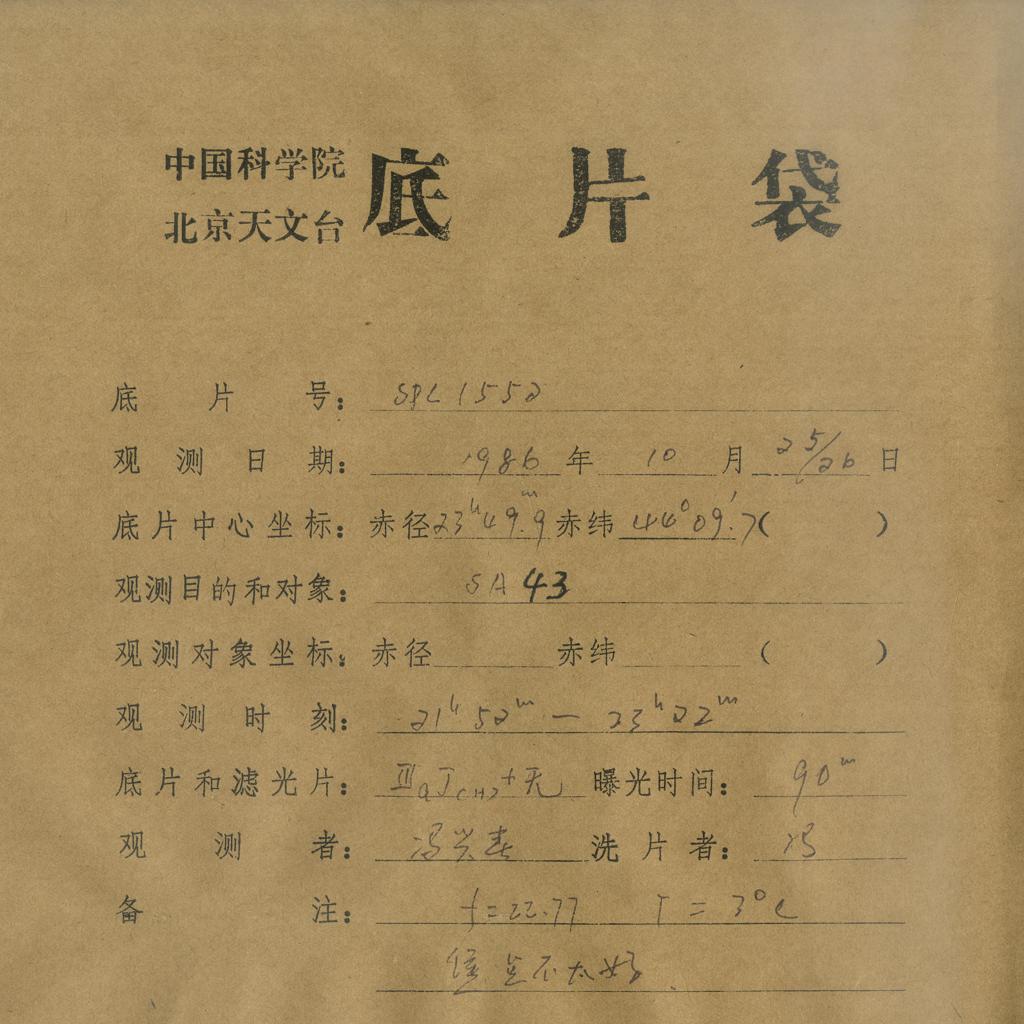 中国科学院
北京天文台
底片袋
底片号: SPL 1552
观测日期: 1986年10月25/26日
底片中心坐标: 赤径23ʰ49ᵐ.9 赤纬44°09′.7( )
观测目的和对象: SA 43
观测对象坐标: 赤径 赤纬 ( )
观测时刻: 21ʰ52ᵐ — 23ʰ22ᵐ
底片和滤光片: ⅢaJ(H2)+无 曝光时间: 90ᵐ
观测者: 冯兴春 洗片者: 冯
备注: f=22.77 T=3°C
不太好.